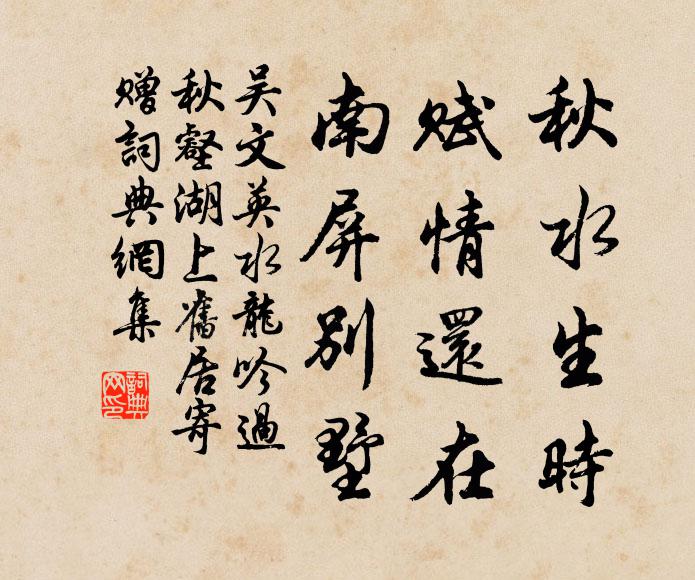 秋水生時
賦情還在
南屏別墅
吴文英水龍吟過
秋壑湖上舊居寄
贈詞典網集
詞典
网印